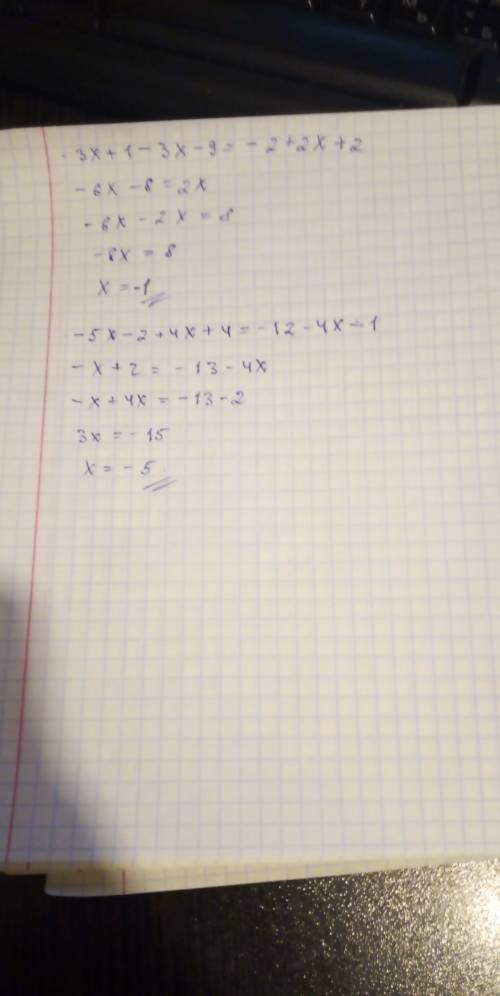 -3x+1-3x-9=-2+2x+2
-6x-8=2x
-6x-2x=8
-8x=8
x=-1
-5x-2+4x+4=-12-4x-1
-x+2=-13-4x
-x+4x=-13-2
3x=-15
x=-5